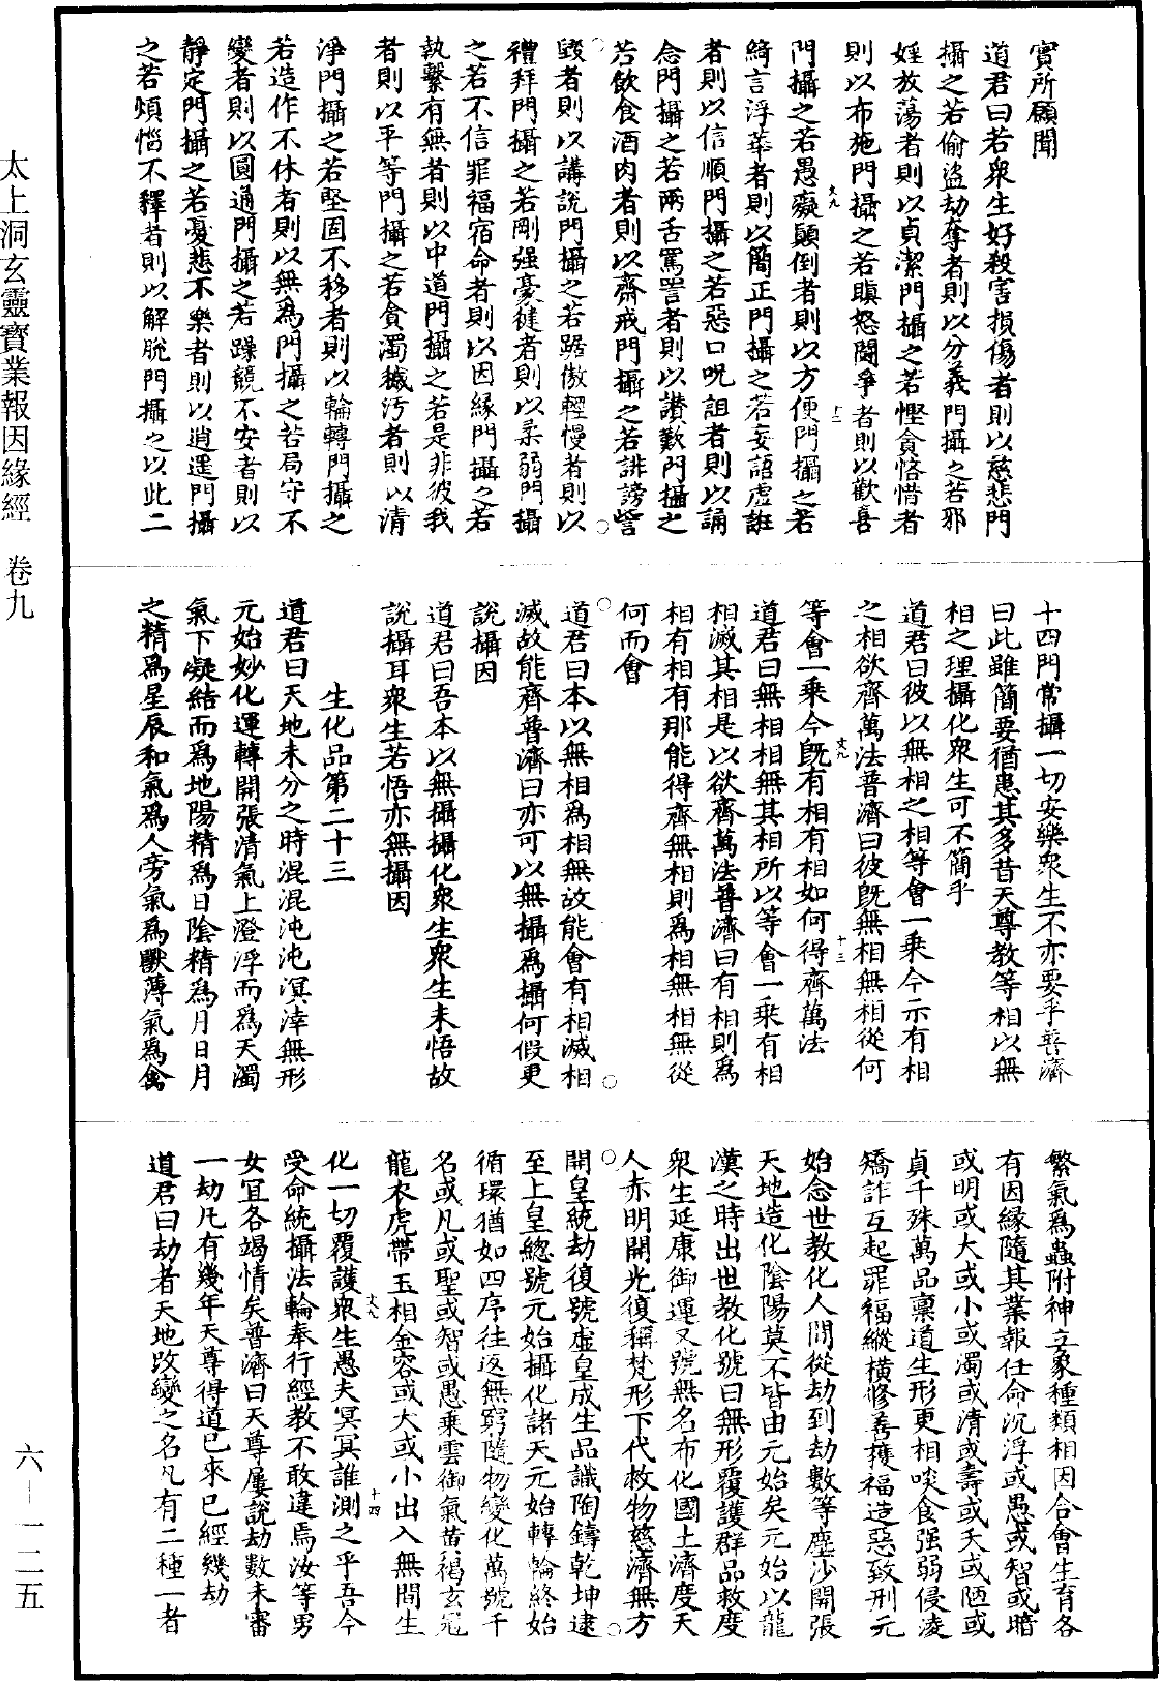 太上洞玄靈寳業報因緣經　卷九
六—一二五
實所願聞
道君曰若衆生好殺害損傷者則以慈悲門
攝之若偷盜劫奪者則以分義門攝之若邪
婬放蕩者則以貞潔門攝之若慳貪悋惜者
則以布施門攝之若瞋怒鬪爭者則以歡喜
文九
十二
門攝之若愚癡顛倒者則以方便門攝之若
綺言浮華者則以簡正門攝之若妄語虛誑
者則以信順門攝之若惡口呪詛者則以誦
念門攝之若兩舌罵詈者則以讃歎門攝之
若飲食酒肉者則以齋戒門攝之若誹謗訾
毀者則以講說門攝之若踞傲輕慢者則以
禮拜門攝之若剛强豪健者則以柔弱門攝
之若不信罪福宿命者則以因緣門攝之若
執繫有無者則以中道門攝之若是非彼我
者則以平等門攝之若貪濁穢污者則以清
淨門攝之若堅固不移者則以輪轉門攝之
若造作不休者則以無爲門攝之若局守不
變者則以圓通門攝之若躁競不安者則以
靜定門攝之若憂悲不樂者則以逍遥門攝
之若煩惱不釋者則以解脫門攝之以此二
十四門常攝一切安樂衆生不亦要乎普濟
曰此雖簡要猶患其多昔天尊教等相以無
相之理攝化衆生可不簡乎
道君曰彼以無相之相等會一乗今示有相
之相欲齊萬法普濟曰彼旣無相無相從何
文九
十三
等會一乗今旣有相有相如何得齊萬法
道君曰無相相無其相所以等會一乗有相
相滅其相是以欲齊萬法普濟曰有相則爲
相有相有那能得齊無相則爲相無相無從
何而會
道君曰本以無相爲相無故能會有相滅相
滅故能齊普濟曰亦可以無攝爲攝何假更
說攝因
道君曰吾本以無攝攝化衆生衆生未悟故
說攝耳衆生若悟亦無攝因
生化品第二十三
道君曰天地未分之時混混沌沌溟涬無形
元始妙化運轉開張清氣上澄浮而爲天濁
氣下凝結而爲地陽精爲日陰精爲月日月
之精爲星辰和氣爲人旁氣爲獸薄氣爲禽
繁氣爲蟲附神立象種類相因合會生育各
有因緣隨其業報任命沉浮或愚或智或暗
或明或大或小或濁或清或壽或夭或陋或
貞千殊萬品禀道生形更相啖食强弱侵凌
矯詐互起罪福縱橫修善獲福造惡致刑元
始念世教化人間從劫到劫數等塵沙開張
天地造化陰陽莫不皆由元始矣元始以龍
漢之時出世教化號曰無形覆護群品救度
衆生延康御運又號無名布化國土濟度天
人赤明開光復稱梵形下代救物慈濟無方
開皇統劫復號虛皇成生品識陶鑄乾坤逮
至上皇總號元始攝化諸天元始轉輪終始
循環猶如四序往返無窮隨物變化萬號千
名或凡或聖或智或愚乗雲御氣黃褐玄冠
文九
十四
龍衣虎帶玉相金容或大或小出入無間生
化一切覆護衆生愚夫冥冥誰測之乎吾今
受命統攝法輪奉行經教不敢違焉汝等男
女冝各竭情矣普濟曰天尊屢說劫數未審
一劫凡有幾年天尊得道已來已經幾劫
道君曰劫者天地改變之名凡有二種一者